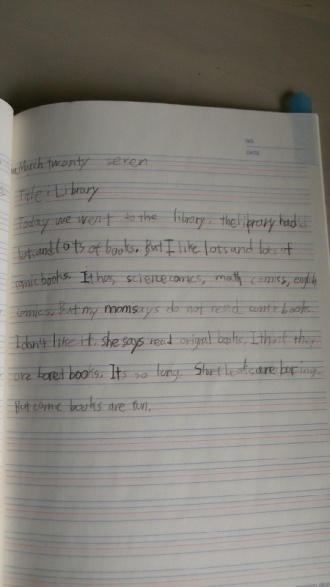 March twonty seven
Title : Library
Today we went to the library. the library had
lots and lots of books. But I like lots and lots of
comic books. It has, science comics, math comics, english
comics. But my mom says do not read comic books.
I don't like it. she says read original books. I think they
are bored books. It's so long. Short books are boring.
But comic books are fun.
NO.
DATE